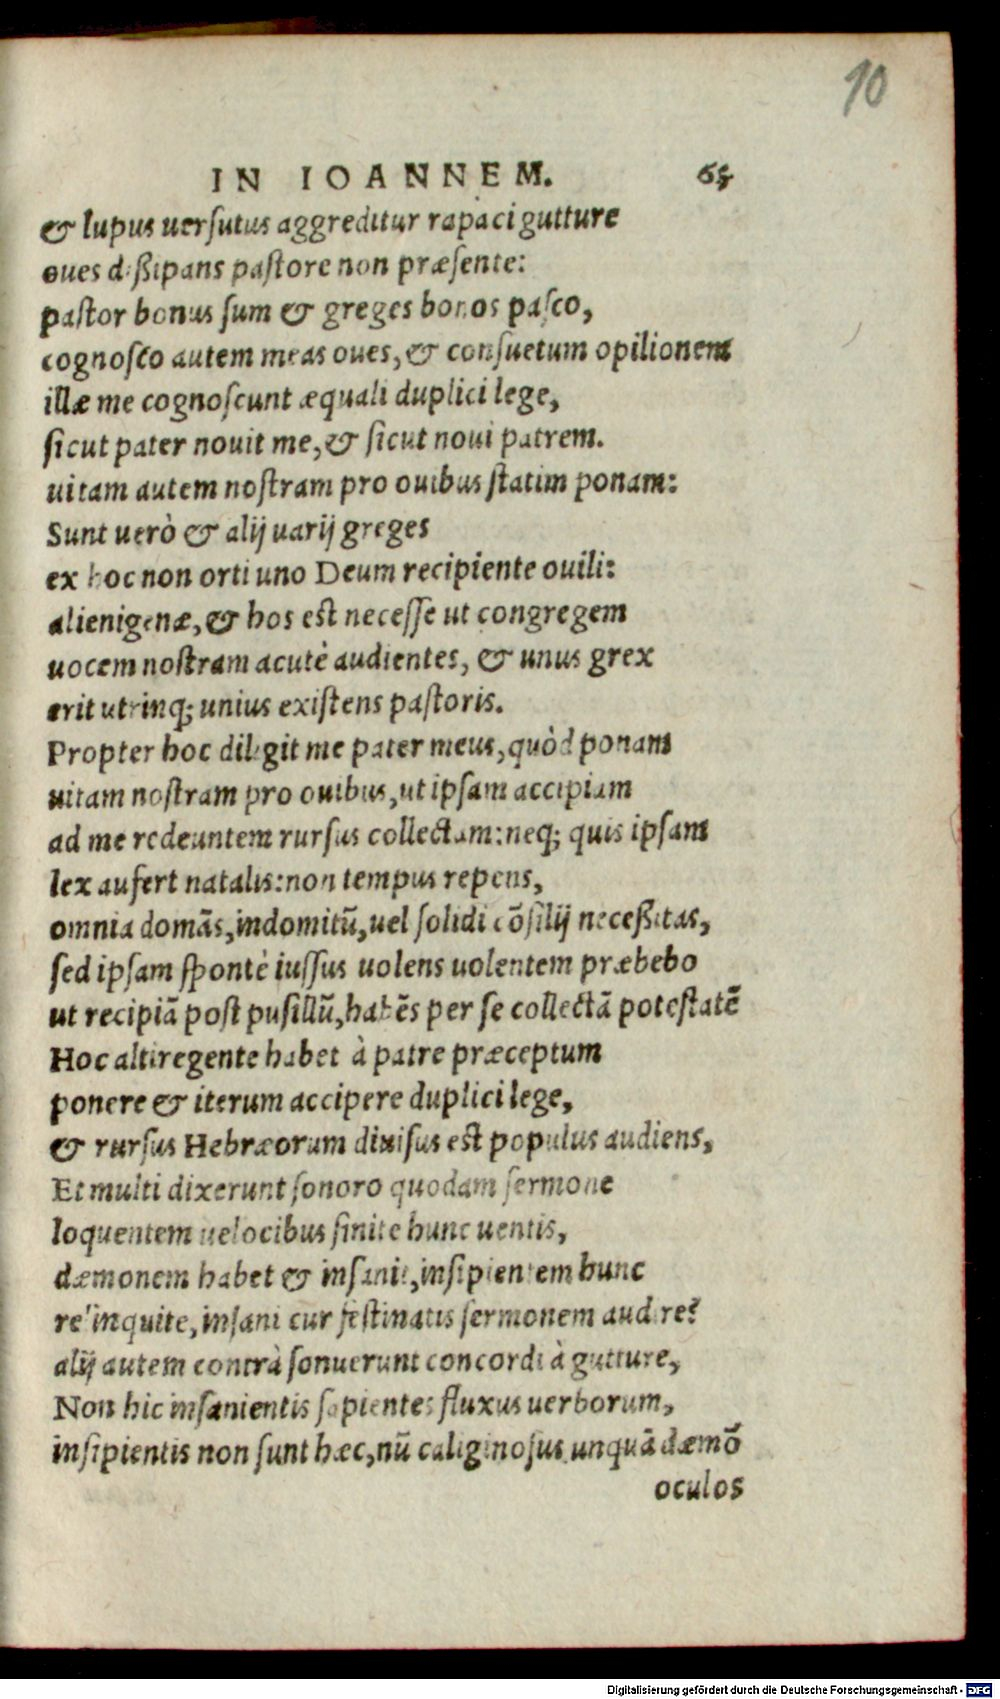 10
IN IOANNEM. 65
& lupus uersutus aggreditur rapaci gutture
oues dißipans pastore non præsente:
pastor bonus sum & greges bonos pasco,
cognosco autem meas oues, & consuetum opilionem
illæ me cognoscunt æquali duplici lege,
sicut pater nouit me, & sicut noui patrem.
uitam autem nostram pro ouibus statim ponam:
Sunt uerò & alij uarij greges
ex hoc non orti uno Deum recipiente ouili:
alienigenæ, & hos est necesse ut congregem
uocem nostram acutè audientes, & unus grex
erit utrinq; unius existens pastoris.
Propter hoc diligit me pater meus, quòd ponam
uitam nostram pro ouibus, ut ipsam accipiam
ad me redeuntem rursus collectam: neq; quis ipsam
lex aufert natalis: non tempus repens,
omnia domãs, indomitũ, uel solidi cõsilij neceßitas,
sed ipsam spontè iussus uolens uolentem præbebo
ut recipiã post pusillũ, habẽs per se collectã potestatẽ
Hoc altiregente habet à patre præceptum
ponere & iterum accipere duplici lege,
& rursus Hebræorum diuisus est populus audiens,
Et multi dixerunt sonoro quodam sermone
loquentem uelocibus sinite hunc uentis,
dæmonem habet & insanit, insipientem hunc
relinquite, insani cur festinatis sermonem audire?
alij autem contrà sonuerunt concordi à gutture,
Non hic insanientis sapientes fluxus uerborum,
insipientis non sunt hæc, nũ caliginosus unquã dæmõ
oculos
Digitalisierung gefördert durch die Deutsche Forschungsgemeinschaft - DFG